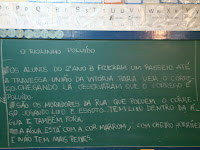 O RIOZINHO POLUÍDO
OS ALUNOS DO 2º ANO B FIZERAM UM PASSEIO ATÉ
A TRAVESSA UNIÃO DA VITÓRIA PARA VER O CÓRRE-
GO. CHEGANDO LÁ OBSERVARAM QUE O CÓRREGO É
POLUÍDO.
SÃO OS MORADORES DA RUA QUE POLUEM O CÓRRE-
GO JOGANDO LIXO E ESGOTO. TEM LIXO DENTRO DA Á-
GUA E TAMBÉM FORA.
A ÁGUA ESTÁ COM A COR MARROM, COM CHEIRO HORRÍVEL
E NÃO TEM MAIS PEIXES.